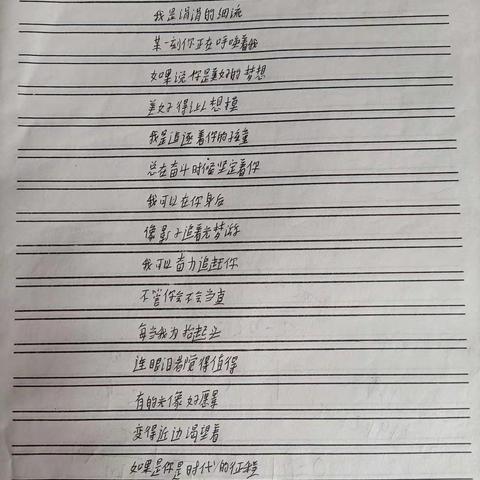 我是涓涓的细流
某一刻你正在呼唤着我
如果说你是美好的梦想
美好得让人想
我是追逐着你的孩童
总在奋斗时候坚定着你
我可以在你身后
像影子追着光梦游
我可以奋力追赶你
不管你会不会当真
每当我为抬起头
连眼泪都觉得值得
有的光像好愿景
变得近边渴望着
如果是你是时代的征程